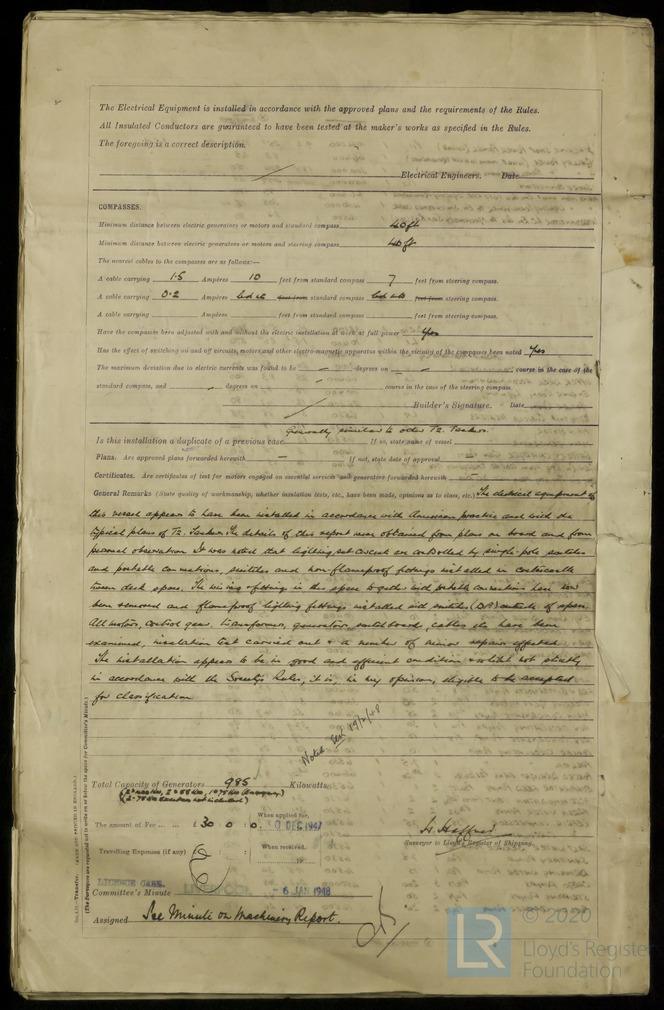 The Electrical Equipment is installed in accordance with the approved plans and the requirements of the Rules.
All Insulated Conductors are guaranteed to have been tested at the maker's works as specified in the Rules.
The foregoing is a correct description.
Electrical Engineers. Date
COMPASSES.
Minimum distance between electric generators or motors and standard compass 40 ft
Minimum distance between electric generators or motors and steering compass 40 ft
The nearest cables to the compasses are as follows:—
A cable carrying 1.5 Ampères 10 feet from standard compass 7 feet from steering compass.
A cable carrying 0.2 Ampères led into feet from standard compass led into feet from steering compass.
A cable carrying Ampères feet from standard compass feet from steering compass.
Have the compasses been adjusted with and without the electric installation at work at full power Yes
Has the effect of switching on and off circuits, motors and other electro-magnetic apparatus within the vicinity of the compasses been noted Yes
The maximum deviation due to electric currents was found to be - degrees on - course in the case of the
standard compass, and - degrees on - course in the case of the steering compass.
Builder's Signature. Date
Generally similar to other T2. Tankers.
Is this installation a duplicate of a previous case If so, state name of vessel
Plans. Are approved plans forwarded herewith - If not, state date of approval -
Certificates. Are certificates of test for motors engaged on essential services and generators forwarded herewith -
General Remarks (State quality of workmanship, whether insulation tests, etc., have been made, opinions as to class, etc.) The electrical equipment of
this vessel appears to have been installed in accordance with American practice and with the
typical plans of T2. Tankers. The details of this report were obtained from plans on board and from
personal observation. It was noted that lighting sub circuits are controlled by single pole switches
and portable connections, switches and non-flameproof fittings installed in
tween deck space. The wiring & fittings in this space together with portable connections have now
been removed and flameproof lighting fittings installed with switches (D.P.) outside of space.
All motors, control gear, transformers, generators, switchboards, cables etc have been
examined, insulation test carried out & a number of minor repairs effected.
The installation appears to be in good and efficient condition & whilst not strictly
in accordance with the Society's Rules, it is, in my opinion, eligible to be accepted
for classification
Noted
Total Capacity of Generators 985 Kilowatts.
The amount of Fee £ 30 0 0 When applied for, DEC 1947
Travelling Expenses (if any) £ : : When received, 19
Surveyor to Lloyd's Register of Shipping.
LICENCE CASE.
Committee's Minute LIVERPOOL - 6 JAN 1948
Assigned See Minute on Machinery Report.
LR
© 2020
Lloyd's Register
Foundation